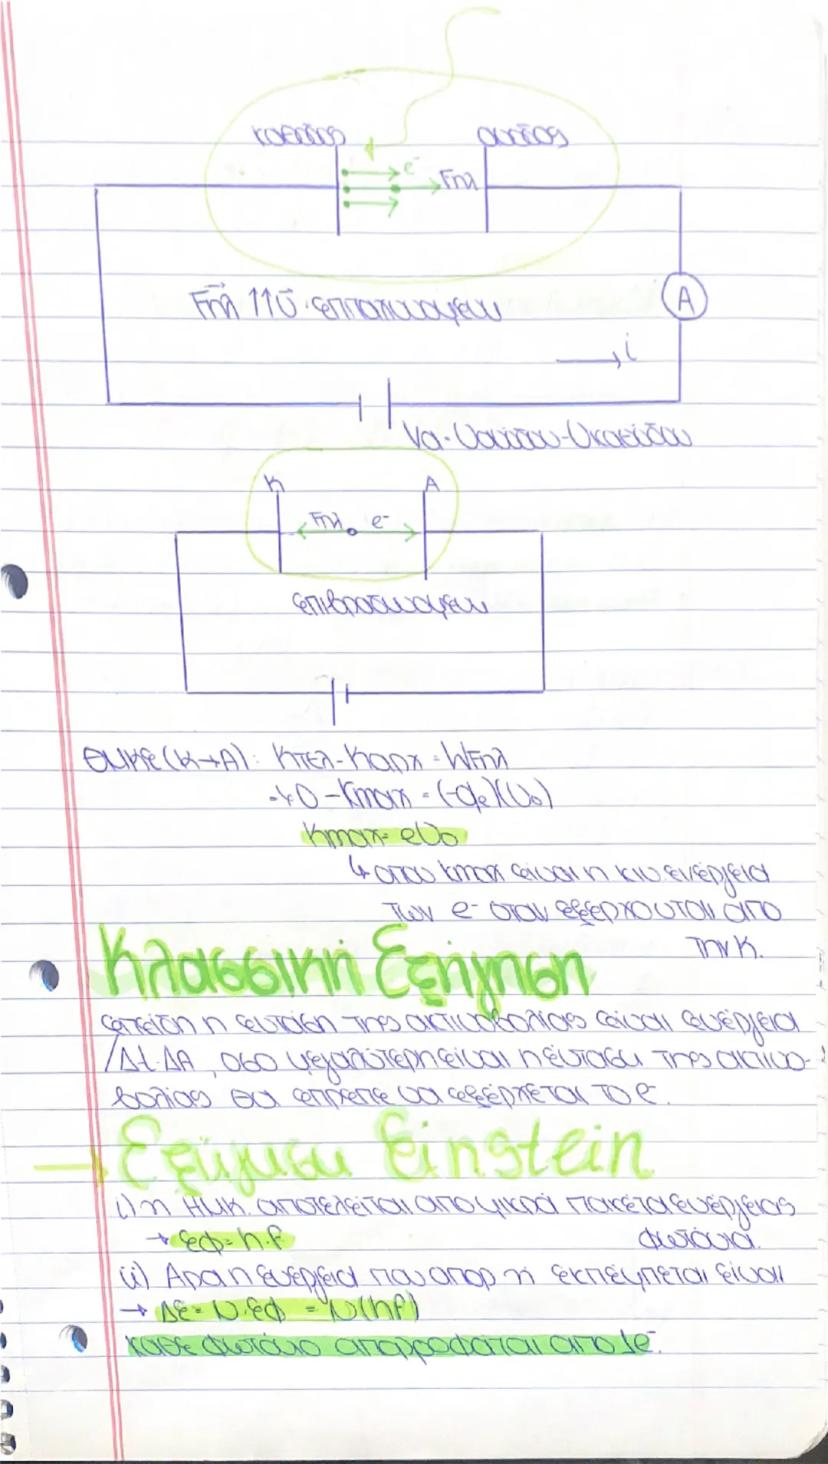 κάθοδος άνοδος
e⁻ Fηλ
Fηλ 11υ επιταχυνόμενη
A
i
Vα = Uανόδου - Uκαθόδου
K A
Fηλ e⁻
επιβραδυνόμενη
ΘΜΚΕ (K→A): Kτελ - Kαρχ = WFηλ
→ 0 - Kmax = (-qe)(U₀)
Kmax = eU₀
↳ όπου Kmax είναι η κιν ενέργεια
των e⁻ όταν εξέρχονται από
την Κ.
Κλασσική Εξήγηση
επειδή η ένταση της ακτινοβολίας είναι ενέργεια
/Δt·ΔΑ, όσο μεγαλύτερη είναι η ένταση της ακτινο-
βολίας θα έπρεπε να εξέρχεται το e⁻.
→ Εξήγηση Einstein
i) η ΗΜΚ. αποτελείται από μικρά πακέτα ενέργειας
→ εφ = h·f φωτόνια.
ii) Άρα η ενέργεια που απορ ή εκπέμπεται είναι
→ Δε = N·εφ = N(hf)
κάθε φωτόνιο απορροφάται από 1e⁻.